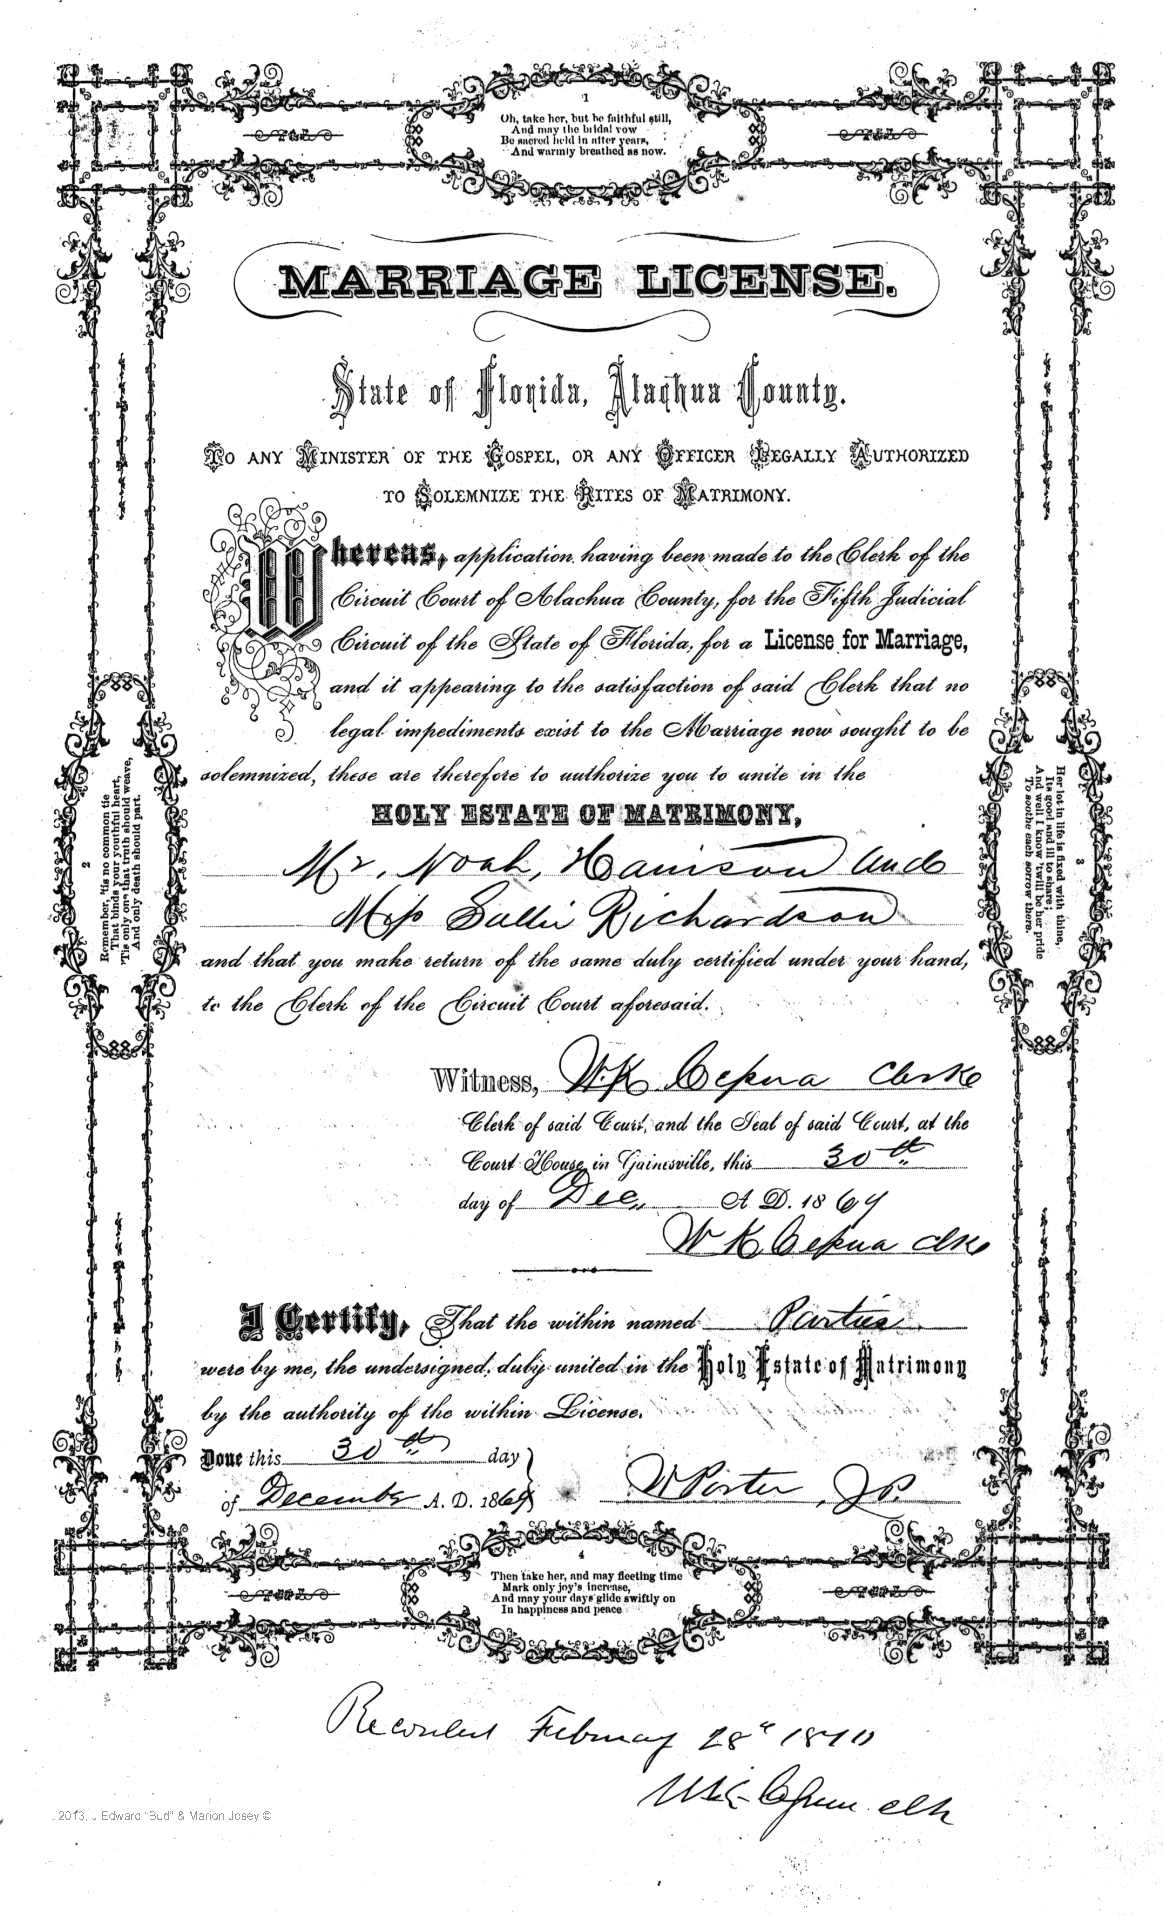 1
Oh, take her, but be faithful still,
And may the bridal vow
Be sacred held in after years,
And warmly breathed as now.
MARRIAGE LICENSE.
State of Florida, Alachua County.
TO ANY MINISTER OF THE GOSPEL, OR ANY OFFICER LEGALLY AUTHORIZED
TO SOLEMNIZE THE RITES OF MATRIMONY.
Whereas, application having been made to the Clerk of the
Circuit Court of Alachua County, for the Fifth Judicial
Circuit of the State of Florida, for a License for Marriage,
and it appearing to the satisfaction of said Clerk that no
legal impediments exist to the Marriage now sought to be
solemnized, these are therefore to authorize you to unite in the
HOLY ESTATE OF MATRIMONY,
Mr. Noah, Harrison and
Miss Sallie Richardson
and that you make return of the same duly certified under your hand,
to the Clerk of the Circuit Court aforesaid.
Witness, W.K. Cessna Clerk
Clerk of said Court, and the Seal of said Court, at the
Court House in Gainesville, this 30th
day of Dec, A. D. 1869
W K Cessna Clk
I Certify, That the within named Parties
were by me, the undersigned, duly united in the Holy Estate of Matrimony
by the authority of the within License.
Done this 30th day
of December A. D. 1869
W Porter, J.P.
2
Remember, 'tis no common tie
That binds your youthful heart,
'Tis only one that truth should weave,
And only death should part.
3
Her lot in life is fixed with thine,
Its good and ill to share;
And well I know 'twill be her pride
To soothe each sorrow there.
4
Then take her, and may fleeting time
Mark only joy's increase,
And may your days glide swiftly on
In happiness and peace
Recorded February 28th 1870
W.K. Cessna clk
2013, J Edward "Bud" & Marion Josey ©